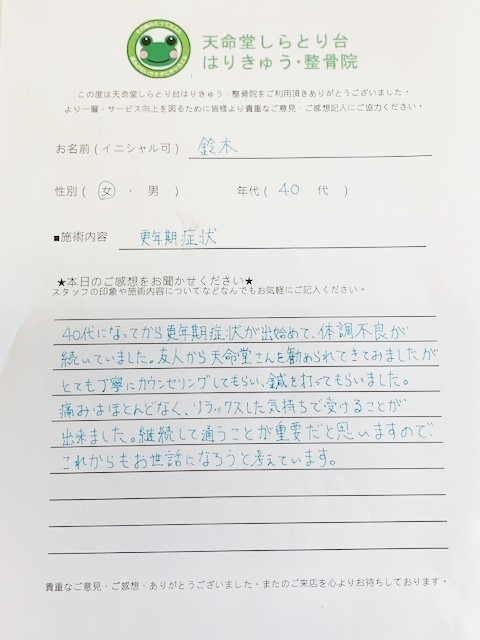 天命堂しらとり台
はりきゅう・整骨院
この度は天命堂しらとり台はりきゅう・整骨院をご利用頂きありがとうございました・
より一層・サービス向上を図るために皆様より貴重なご意見・ご感想記入にご協力ください・
お名前(イニシャル可) 鈴木
性別( 女 ・ 男 ) 年代( 40 代 )
■施術内容 更年期症状
★本日のご感想をお聞かせください★
スタッフの印象や施術内容についてなどなんでもお気軽にご記入ください・
40代になってから更年期症状が出始めて、体調不良が
続いていました。友人から天命堂さんを勧められてきてみましたが
とても丁寧にカウンセリングしてもらい、鍼を打ってもらいました。
痛みはほとんどなく、リラックスした気持ちで受けることが
出来ました。継続して通うことが重要だと思いますので、
これからもお世話になろうと考えています。
貴重なご意見・ご感想・ありがとうございました・またのご来店を心よりお待ちしております・